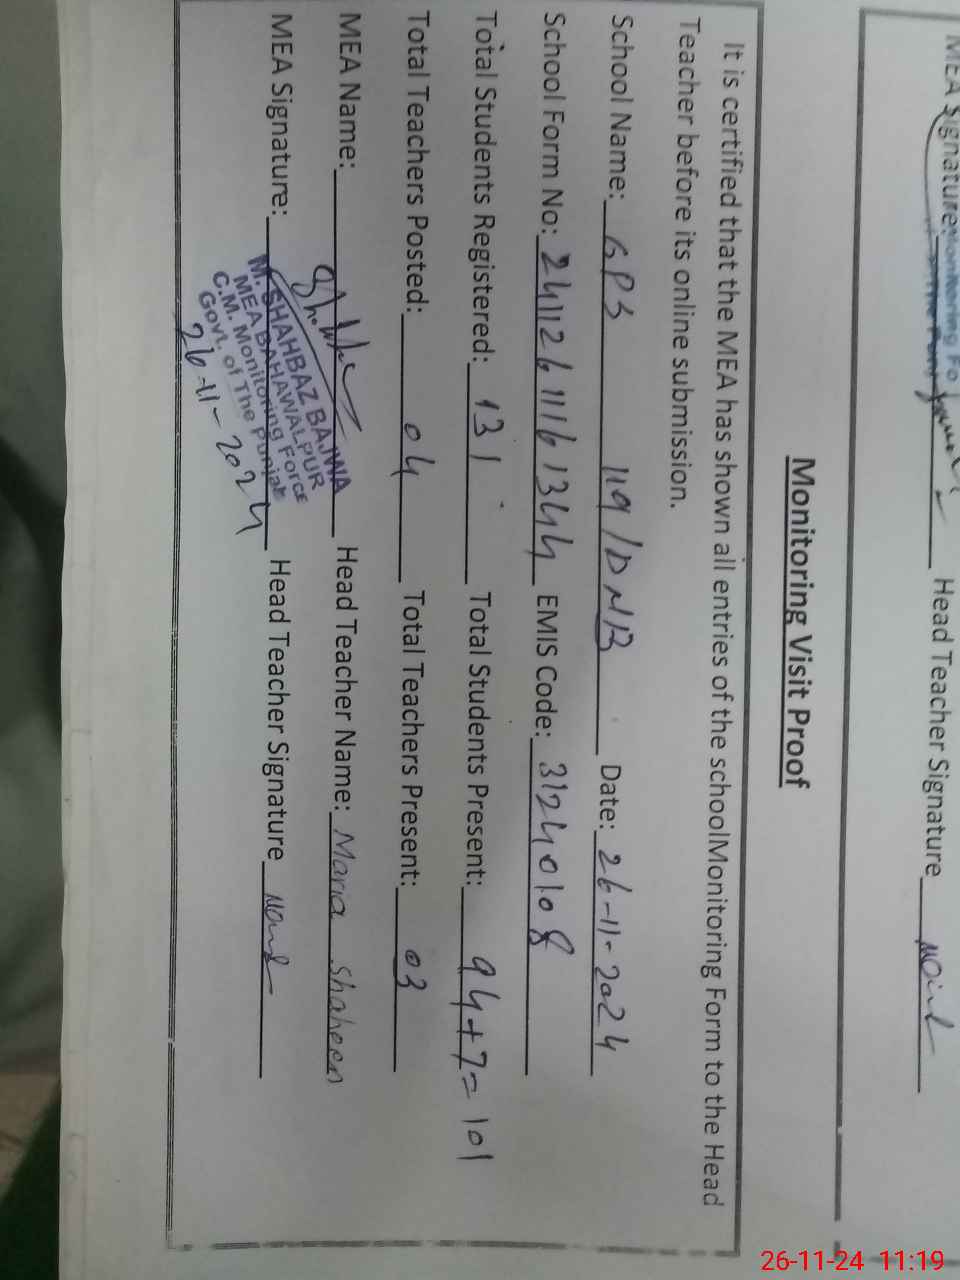 MEA Signature: Head Teacher Signature
Monitoring Fo
Monitoring Visit Proof
It is certified that the MEA has shown all entries of the schoolMonitoring Form to the Head
Teacher before its online submission.
School Name: GPS 119/DNB Date: 26-11-2024
School Form No: 24112611161344 EMIS Code: 31240108
Total Students Registered: 131 Total Students Present: 94+7=101
Total Teachers Posted: 04 Total Teachers Present: 03
MEA Name: Head Teacher Name: Maria Shaheen
MEA Signature: Head Teacher Signature
M. SHAHBAZ BAJWA
MEA BAHAWALPUR
C.M. Monitoring Force
Govt. of The Punjab
26-11-2024
26-11-24 11:19